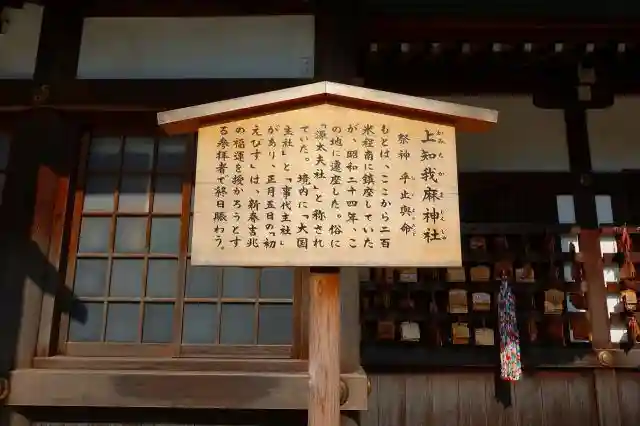 上知我麻神社
かみちかまじんじゃ
祭神 乎止與命
をとよのみこと
もとは、ここから二百
米程南に鎮座していた
が、昭和二十四年、こ
の地に遷座した。俗に
「源太夫社」と称され
ていた。境内に「大国
主社」と「事代主社」
があり、正月五日の「初
えびす」は、新春吉兆
の福運を授かろうとす
る参拝者で終日賑わう。